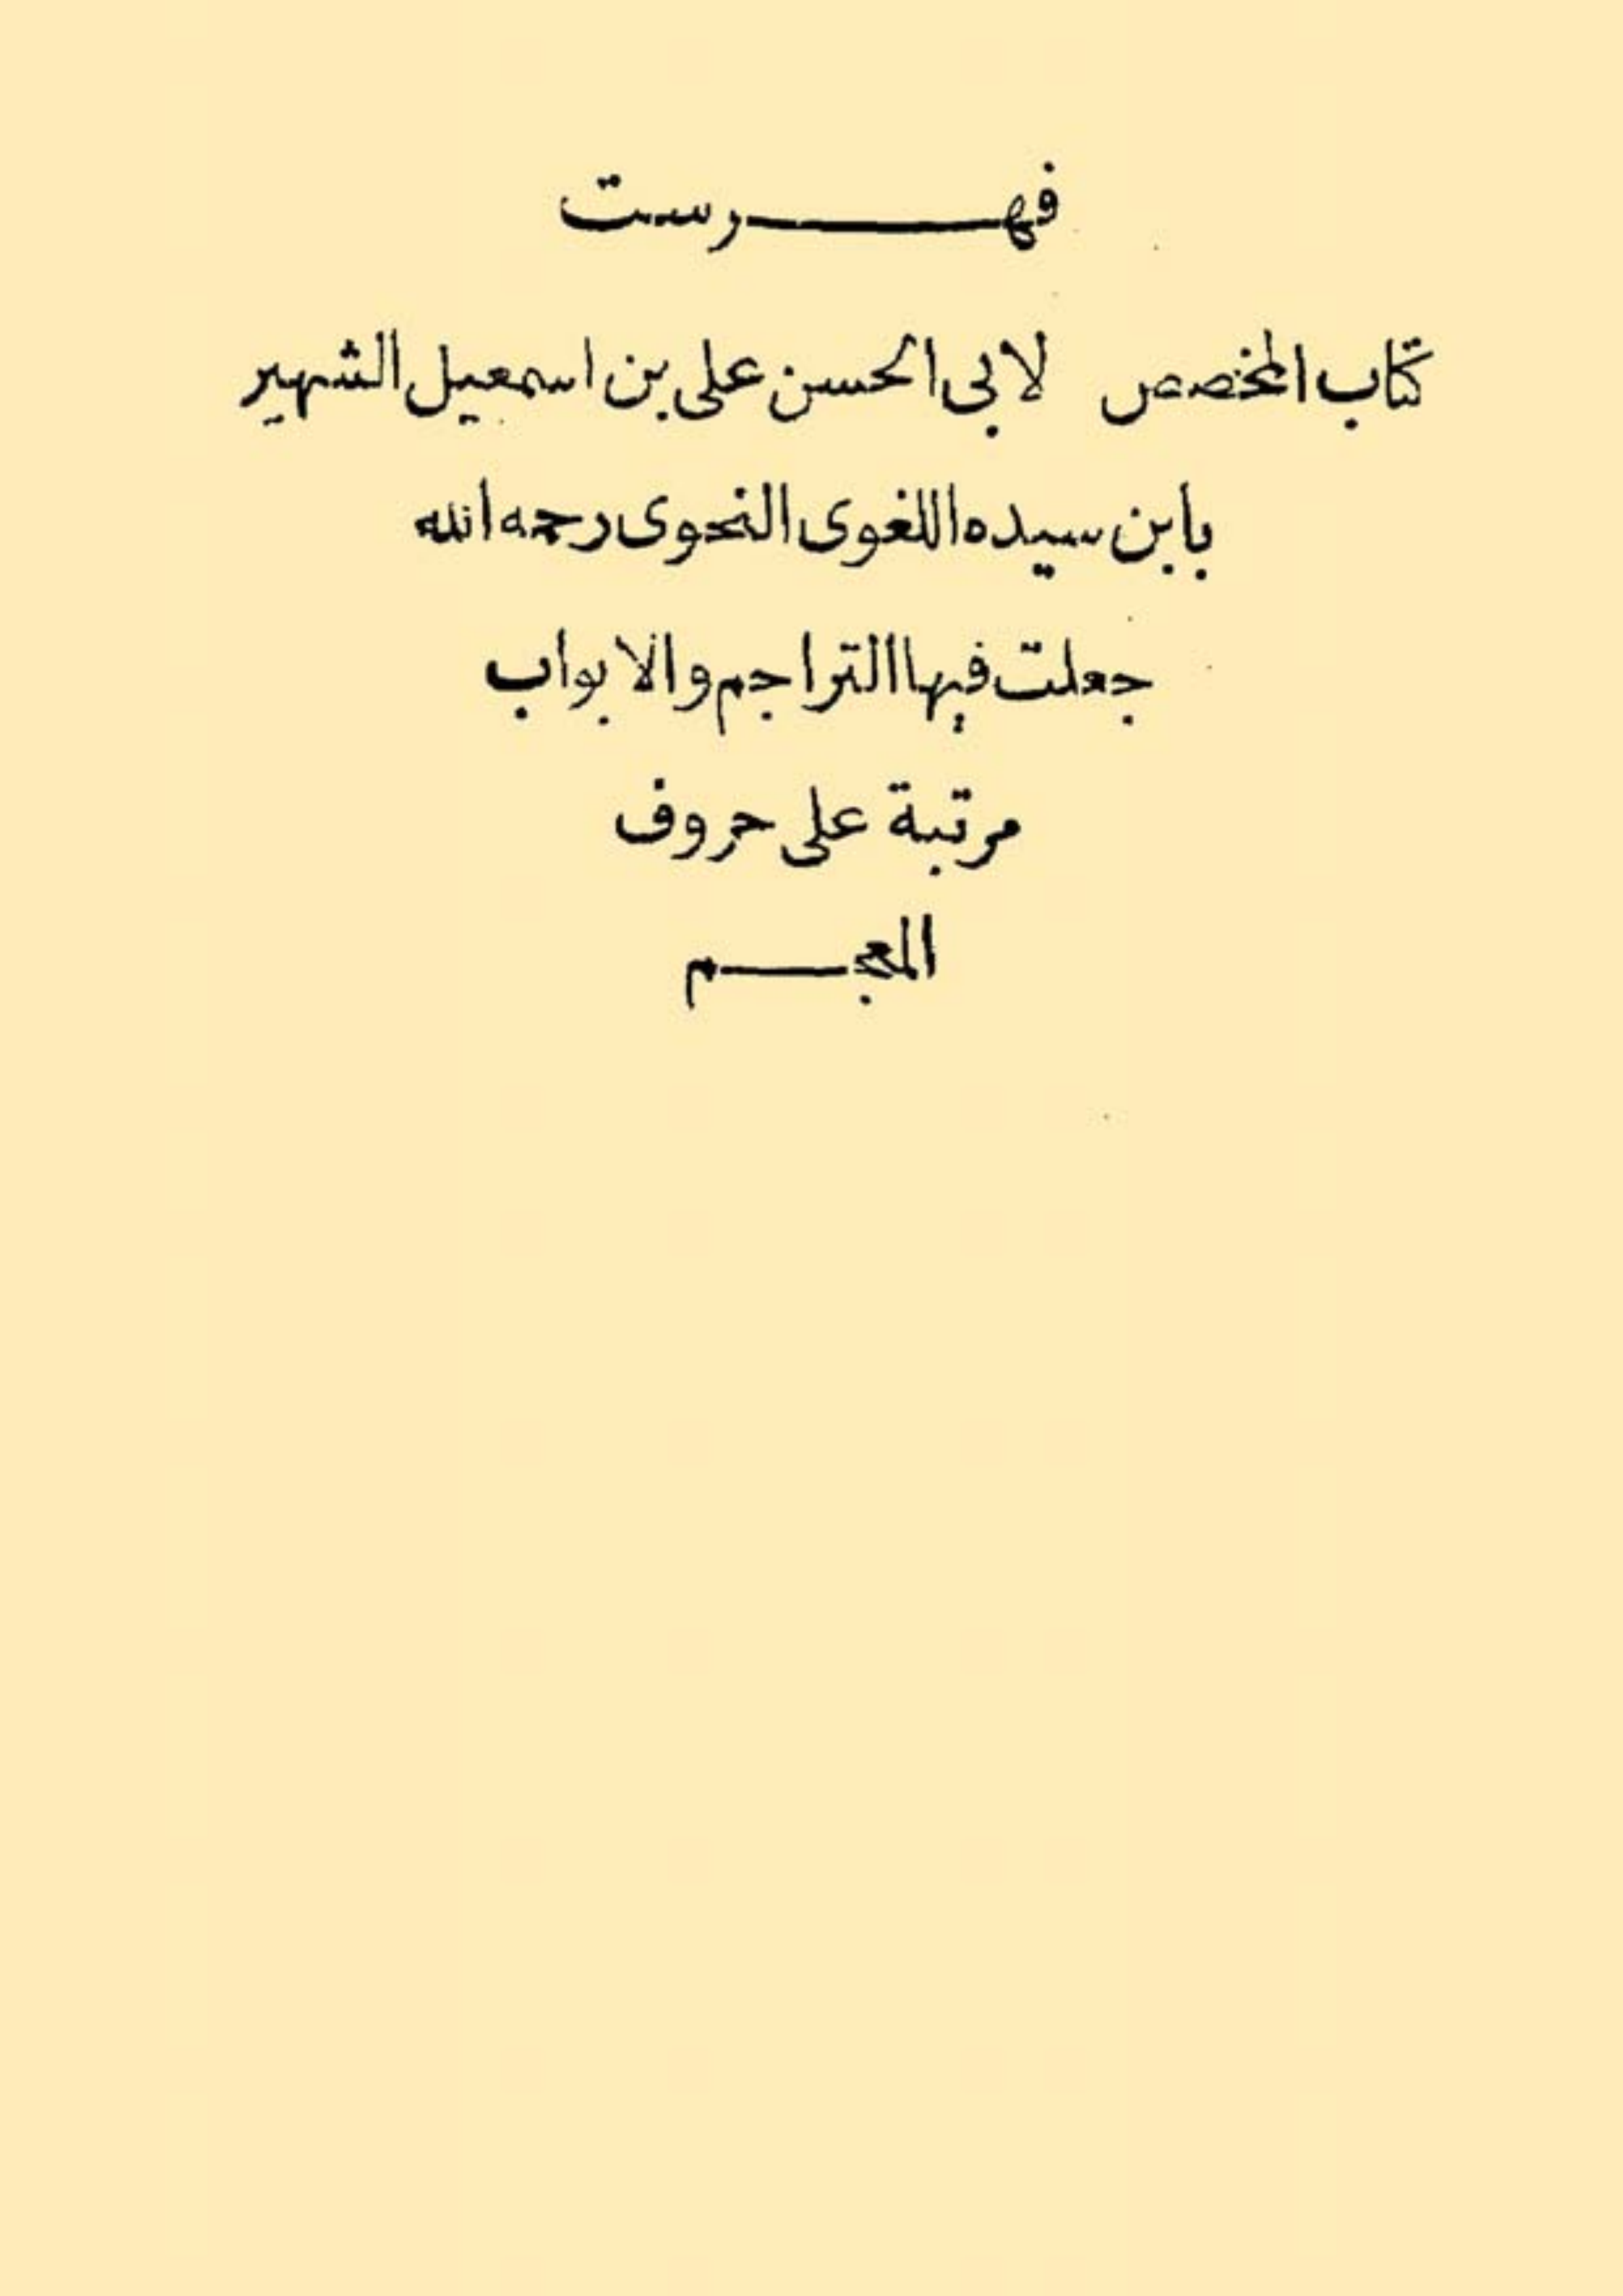 فهـــــرست
كتاب المخصص لابى الحسن على بن اسمعيل الشهير
بابن سيده اللغوى النحوى رحمه الله
جعلت فيها التراجم والابواب
مرتبة على حروف
المعجـــم